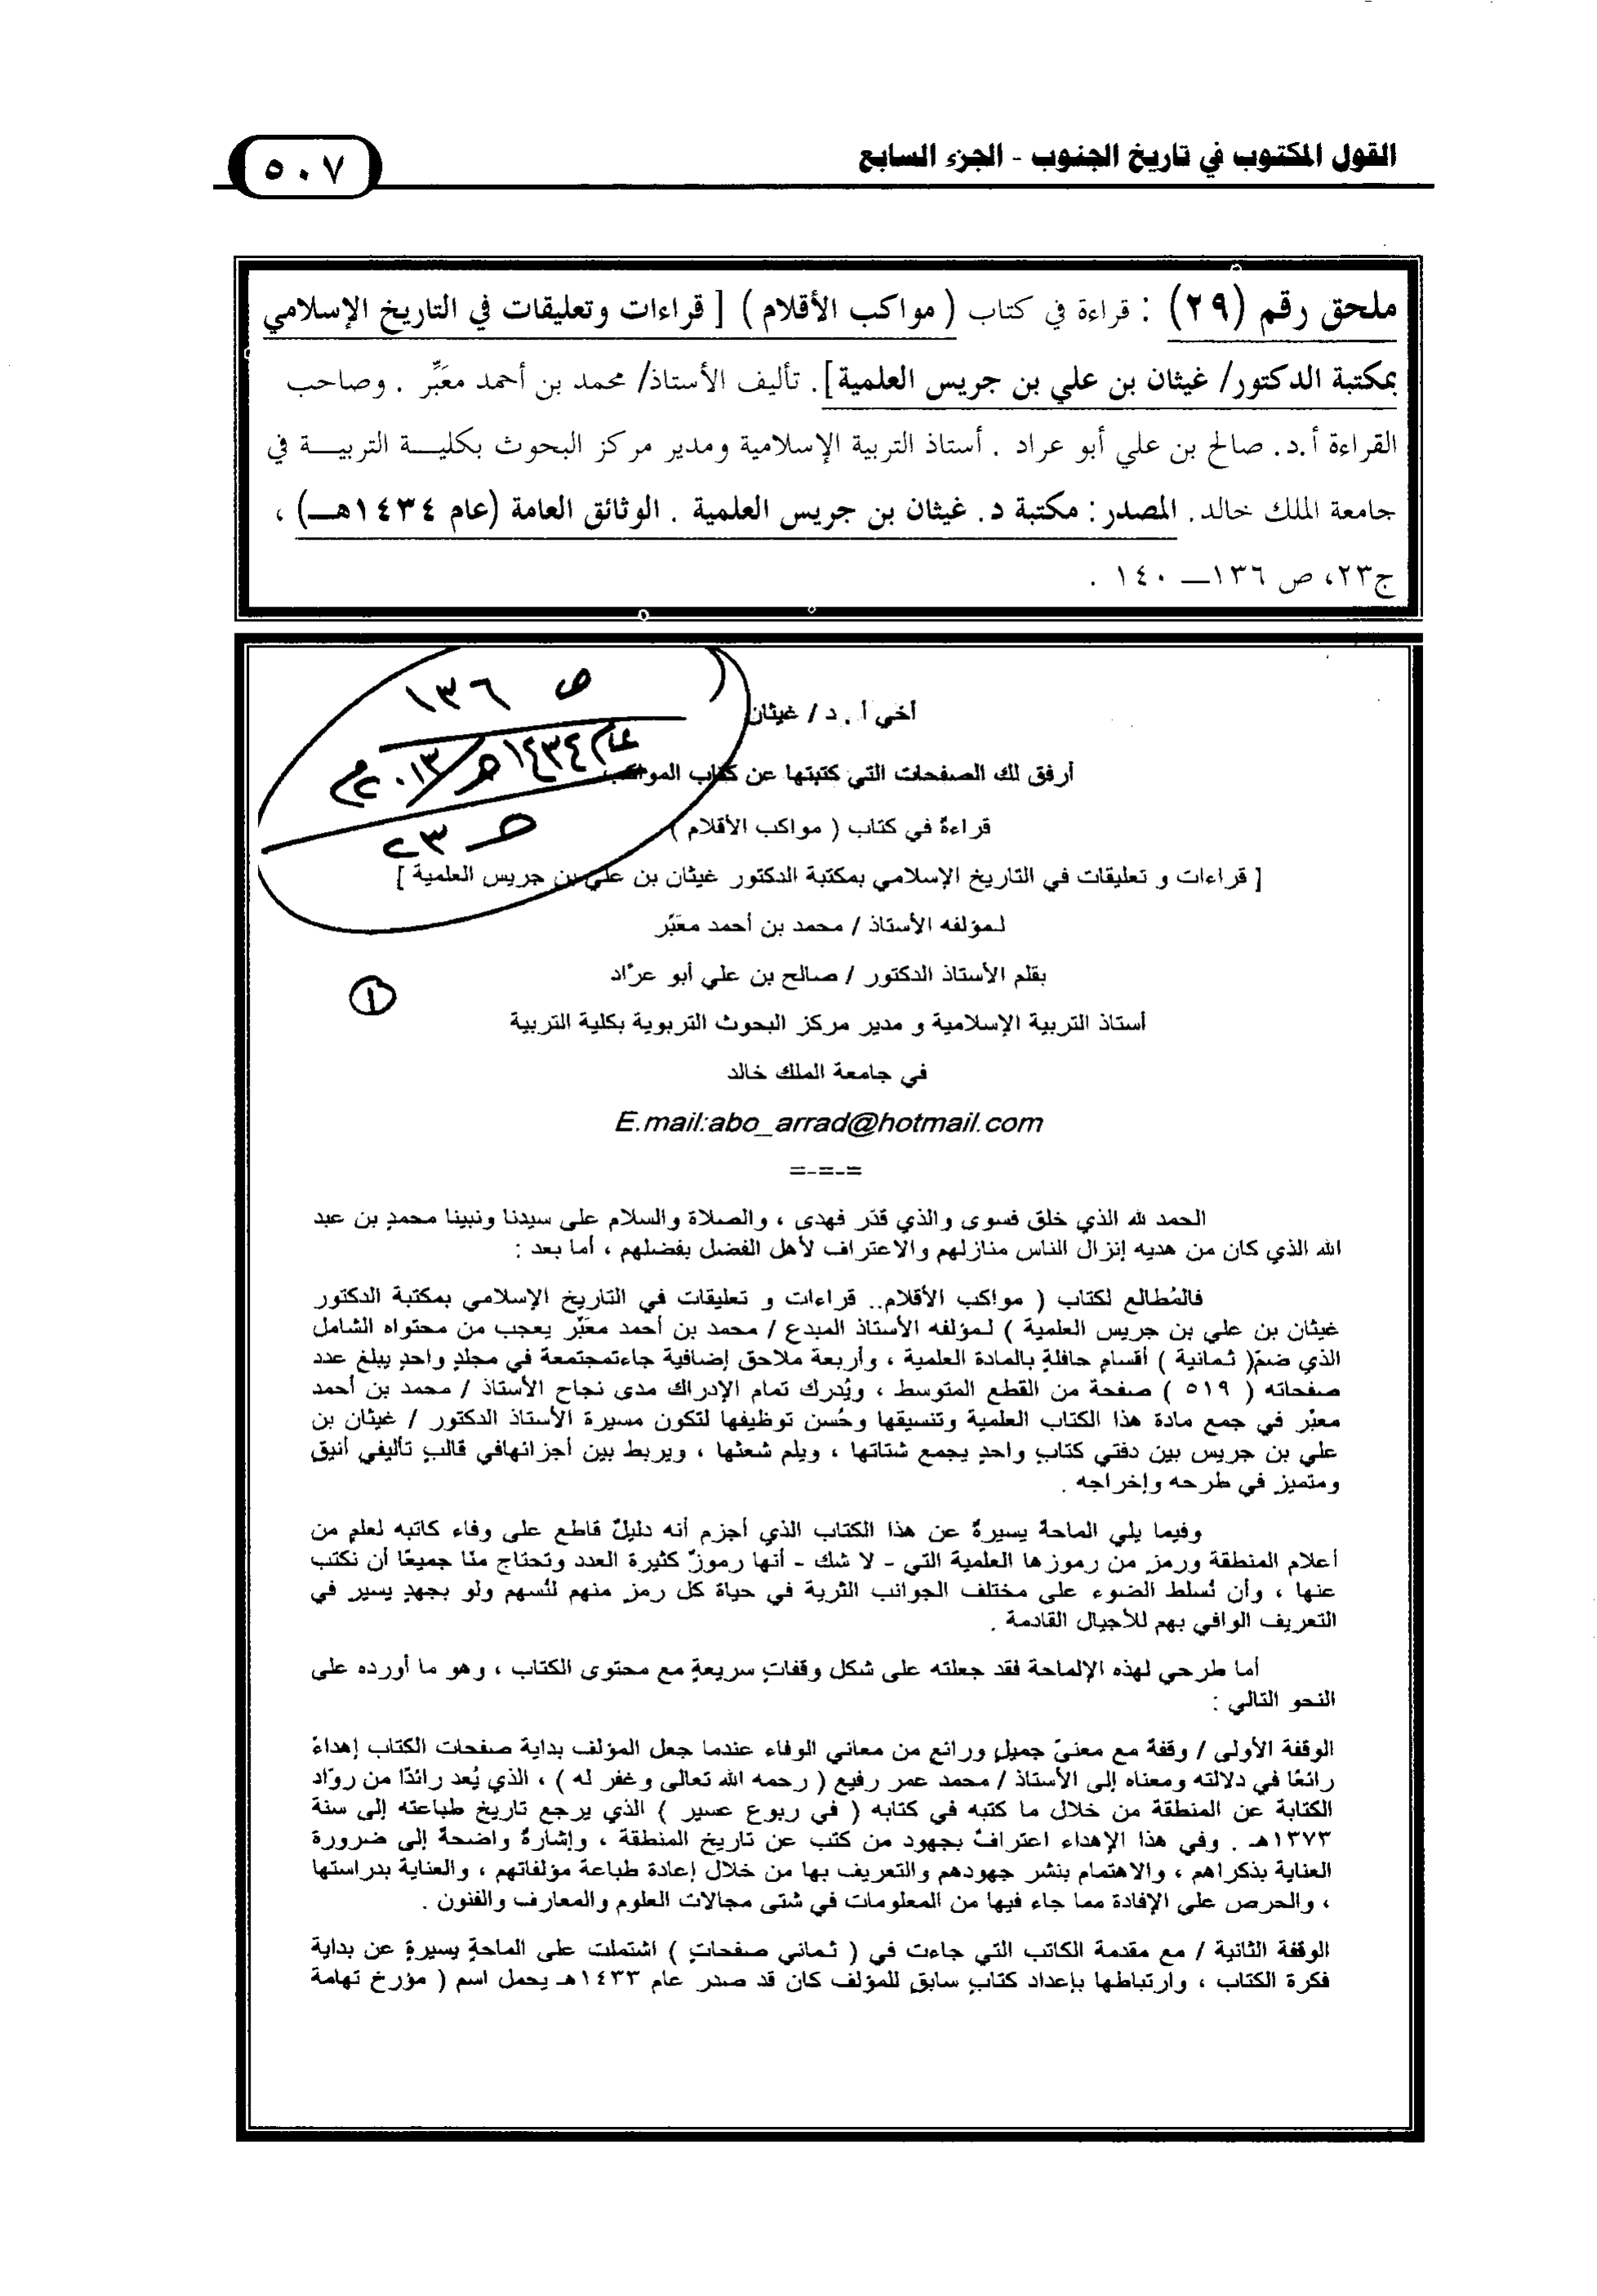 القول المكتوب في تاريخ الجنوب - الجزء السابع
٥٠٧
ملحق رقم (٢٩) : قراءة في كتاب ( مواكب الأقلام ) [ قراءات وتعليقات في التاريخ الإسلامي
بمكتبة الدكتور/ غيثان بن علي بن جريس العلمية]. تأليف الأستاذ/ محمد بن أحمد معَبِّر . وصاحب
القراءة أ.د. صالح بن علي أبو عراد . أستاذ التربية الإسلامية ومدير مركز البحوث بكليـــة التربيـــة في
جامعة الملك خالد. المصدر: مكتبة د. غيثان بن جريس العلمية . الوثائق العامة (عام ١٤٣٤هـــ) ،
ج٢٣، ص ١٣٦— ١٤٠ .
ص ١٣٦
عام ١٤٣٤هـ/٢٠١٣م
ج ٢٣
أخي أ . د / غيثان
أرفق لك الصفحات التي كتبتها عن كتاب المواكب
قراءةٌ في كتاب ( مواكب الأقلام )
[ قراءات و تعليقات في التاريخ الإسلامي بمكتبة الدكتور غيثان بن علي بن جريس العلمية ]
لـمؤلفه الأستاذ / محمد بن أحمد معَبّر
بقلم الأستاذ الدكتور / صالح بن علي أبو عرّاد
١
أستاذ التربية الإسلامية و مدير مركز البحوث التربوية بكلية التربية
في جامعة الملك خالد
E.mail:abo_arrad@hotmail.com
=-=-=
الحمد لله الذي خلق فسوى والذي قدّر فهدى ، والصلاة والسلام على سيدنا ونبينا محمدٍ بن عبد
الله الذي كان من هديه إنزال الناس منازلهم والاعتراف لأهل الفضل بفضلهم ، أما بعد :
فالمُطالع لكتاب ( مواكب الأقلام.. قراءات و تعليقات في التاريخ الإسلامي بمكتبة الدكتور
غيثان بن علي بن جريس العلمية ) لـمؤلفه الأستاذ المبدع / محمد بن أحمد معَبّر يعجب من محتواه الشامل
الذي ضمّ( ثـمانية ) أقسامٍ حافلةٍ بالمادة العلمية ، وأربعة ملاحق إضافية جاءتمجتمعة في مجلدٍ واحدٍ يبلغ عدد
صفحاته ( ٥١٩ ) صفحة من القطع المتوسط ، ويُدرك تمام الإدراك مدى نجاح الأستاذ / محمد بن أحمد
معبّر في جمع مادة هذا الكتاب العلمية وتنسيقها وحُسن توظيفها لتكون مسيرة الأستاذ الدكتور / غيثان بن
علي بن جريس بين دفتي كتابٍ واحدٍ يجمع شتاتها ، ويلم شعثها ، ويربط بين أجزائهافي قالبٍ تأليفي أنيق
ومتميز في طرحه وإخراجه .
وفيما يلي الماحة يسيرةٌ عن هذا الكتاب الذي أجزم أنه دليلٌ قاطع على وفاء كاتبه لعلمٍ من
أعلام المنطقة ورمزٍ من رموزها العلمية التي - لا شك - أنها رموزٌ كثيرة العدد وتحتاج منّا جميعًا أن نكتب
عنها ، وأن نُسلط الضوء على مختلف الجوانب الثرية في حياة كل رمز منهم لنُسهم ولو بجهدٍ يسير في
التعريف الوافي بهم للأجيال القادمة .
أما طرحي لهذه الإلماحة فقد جعلته على شكل وقفاتٍ سريعةٍ مع محتوى الكتاب ، وهو ما أورده على
النحو التالي :
الوقفة الأولى / وقفةٌ مع معنىً جميلٍ ورائع من معاني الوفاء عندما جعل المؤلف بداية صفحات الكتاب إهداءً
رائعًا في دلالته ومعناه إلى الأستاذ / محمد عمر رفيع ( رحمه الله تعالى وغفر له ) ، الذي يُعد رائدًا من روّاد
الكتابة عن المنطقة من خلال ما كتبه في كتابه ( في ربوع عسير ) الذي يرجع تاريخ طباعته إلى سنة
١٣٧٣هـ . وفي هذا الإهداء اعترافٌ بجهود من كتب عن تاريخ المنطقة ، وإشارةٌ واضحةٌ إلى ضرورة
العناية بذكراهم ، والاهتمام بنشر جهودهم والتعريف بها من خلال إعادة طباعة مؤلفاتهم ، والعناية بدراستها
، والحرص على الإفادة مما جاء فيها من المعلومات في شتى مجالات العلوم والمعارف والفنون .
الوقفة الثانية / مع مقدمة الكاتب التي جاءت في ( ثـماني صفحات ) اشتملت على الماحةٍ يسيرةٍ عن بداية
فكرة الكتاب ، وارتباطها بإعداد كتابٍ سابقٍ للمؤلف كان قد صدر عام ١٤٣٣هـ يحمل اسم ( مؤرخ تهامة